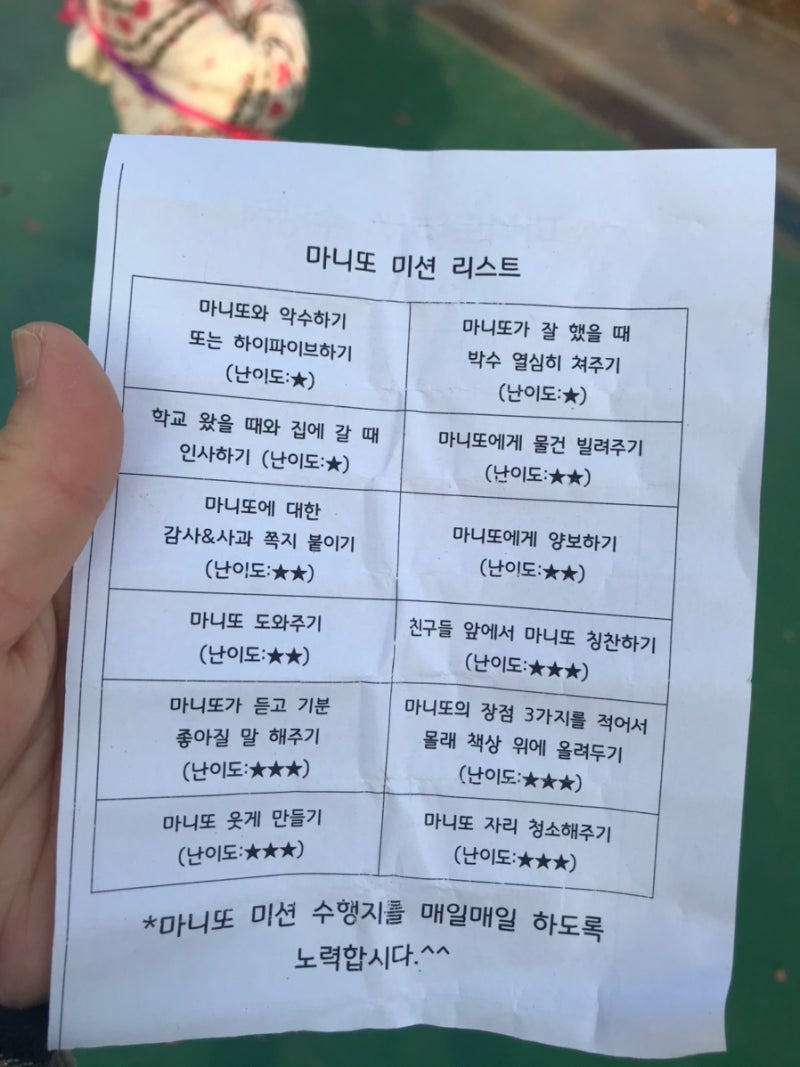 마니또 미션 리스트
마니또와 악수하기
또는 하이파이브하기
(난이도:★)
마니또가 잘 했을 때
박수 열심히 쳐주기
(난이도:★)
학교 왔을 때와 집에 갈 때
인사하기 (난이도:★)
마니또에게 물건 빌려주기
(난이도:★★)
마니또에 대한
감사&사과 쪽지 붙이기
(난이도:★★)
마니또에게 양보하기
(난이도:★★)
마니또 도와주기
(난이도:★★)
친구들 앞에서 마니또 칭찬하기
(난이도:★★★)
마니또가 듣고 기분
좋아질 말 해주기
(난이도:★★★)
마니또의 장점 3가지를 적어서
몰래 책상 위에 올려두기
(난이도:★★★)
마니또 웃게 만들기
(난이도:★★★)
마니또 자리 청소해주기
(난이도:★★★)
*마니또 미션 수행지를 매일매일 하도록
노력합시다.^^